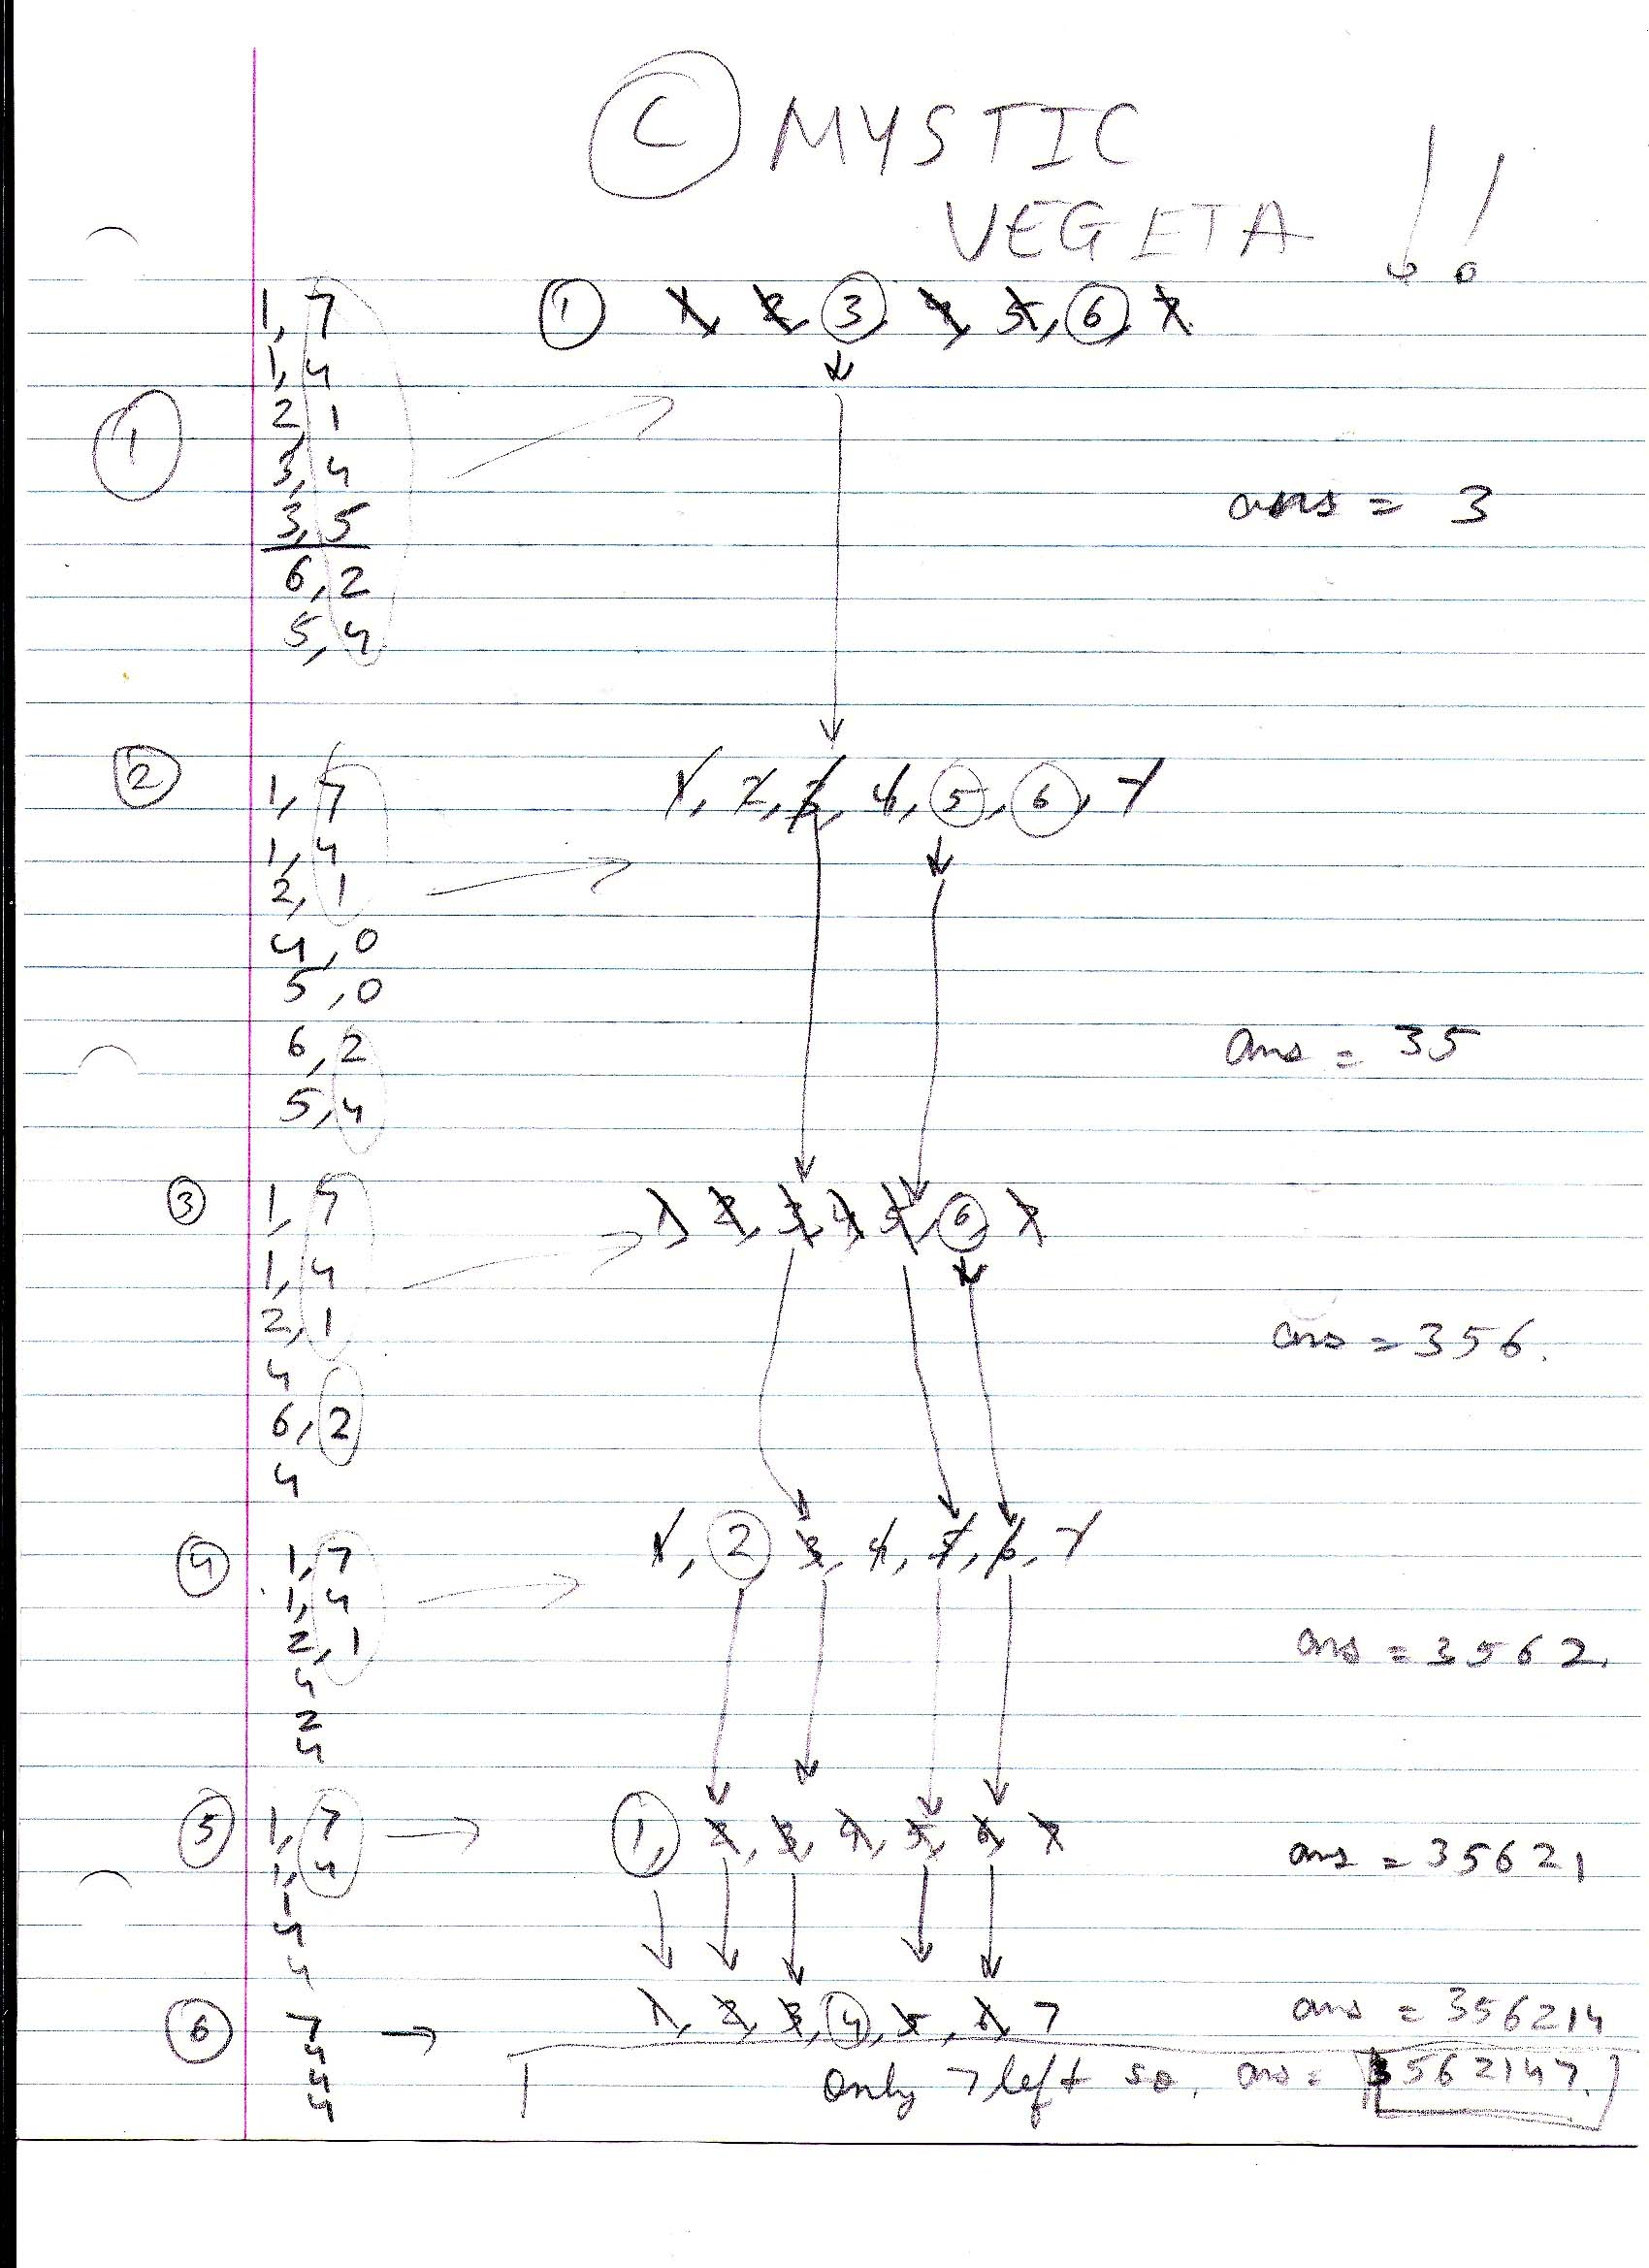 © MYSTIC
VEGETA !!
1, 7 ① 1, 2, 3, 4, 5, 6, 7.
1, 4
2, 1
① 3, 4
3, 5 ans = 3
6, 2
5, 4
② 1, 7 1, 2, 3, 4, 5, 6, 7
1, 4
2, 1
4, 0
5, 0
6, 2 ans = 35
5, 4
③ 1, 7 1, 2, 3, 4, 5, 6, 7
1, 4
2, 1 ans = 356.
4
6, 2
4
④ 1, 7 1, 2, 3, 4, 5, 6, 7
1, 4
2, 1 ans = 3562.
4
2
4
⑤ 1, 7 1, 2, 3, 4, 5, 6, 7 ans = 35621
1, 4
1
4
4
⑥ 7 1, 2, 3, 4, 5, 6, 7 ans = 356214
4
4 only 7 left so, ans = 3562147.
4